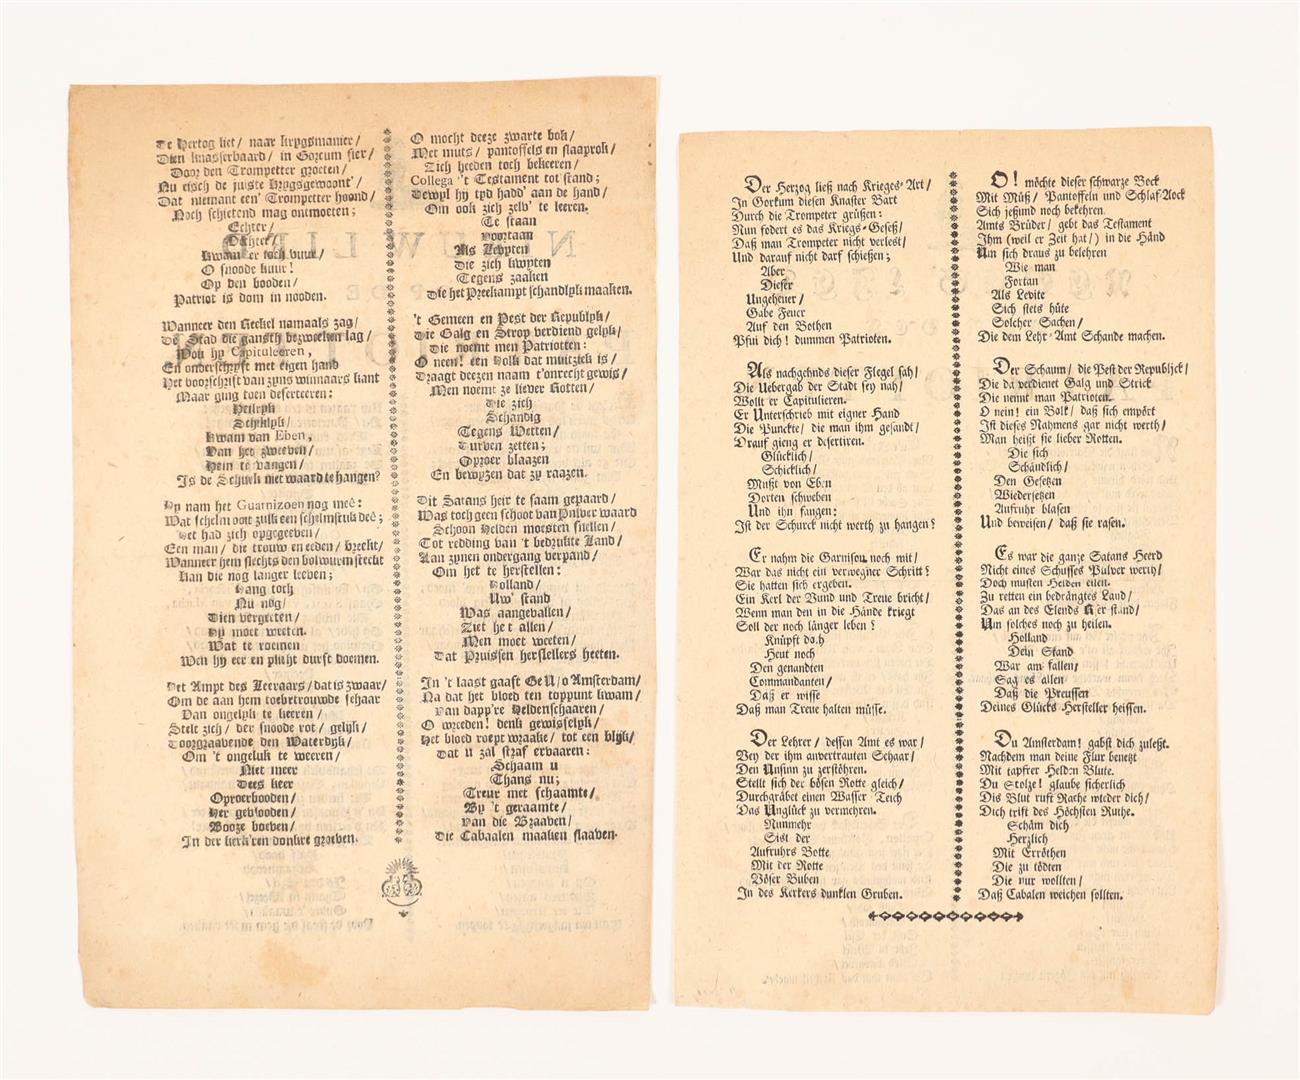 De Hertog liet / naar krygsmanier /
Dien knasterbaard / in Gorcum fier /
Door den Trompetter groeten /
Nu eisch de juiste krygsgewoont' /
Dat niemant een' Trompetter hoond /
Noch schietend mag ontmoeten ;
Echter /
Kwam er toch vuur /
O snoode kuur !
Op den booden /
Patriot is dom in nooden.
Wanneer den Reckel namaals zag /
De Stad die gansch bezweeken lag /
Wou hy Capituleeren,
En onderschryft met eigen hand
Het voorschrift van zyns winnaars kant
Maar ging toen deserteeren :
Heilryk
Schiklyk /
Kwam van Eben,
Van her zweeven /
Hem te vangen /
Is de Schurk niet waard te hangen?
Hy nam het Guarnizoen nog meê :
Wat schelm ooit zulk een schelmstuk deê ;
Het had zich opgegeeven /
Een man / die trouw en eeden / breekt /
Wanneer hem slechts den bolwurm steekt
Kan die nog langer leeven ;
Hang toch
Nu nog /
Dien vergeeten /
Hy moet weeten.
Wat te roemen
Wen hy eer en plicht durft doemen.
Het Ampt des Leeraars / dat is zwaar /
Om de aan hem toebetrouwde schaar
Van ongelyk te keeren /
Stelt zich / der snoode rot / gelyk /
Doorgraavende den Waterdyk /
Om 't ongeluk te weeren /
Niet meer
Dees keer
Oproerbooden /
Her gevlooden /
Booze boeven /
In der kerk'ren donkre groeben.
O mocht deeze zwarte bok /
Met muts / pantoffels en slaaprok /
Zich heeden toch bekeeren /
Collega 't Testament tot stand ;
Dewyl hy tyd hadd' aan de hand /
Om ook zich zelv' te leeren.
Te staan
voortaan
Als Levyten
Die zich kwyten
Tegens zaaken
Die het Preekampt schandlyk maaken.
't Gemeen en Pest der Republyk /
Die Galg en Strop verdiend gelyk /
Die noemt men Patriotten :
O neen ! een volk dat muitziek is /
Draagt deezen naam t'onrecht gewis /
Men noemt ze liever Rotten /
Die zich
Schandig
Tegens Wetten /
Durven zetten ;
Oproer blaazen
En bewyzen dat zy raazen.
Dit Satans heir te saam gepaard /
Was toch geen schoot van Pulver waard
Schoon Helden moesten snellen /
Tot redding van 't bedrukte Land /
Aan zynen ondergang verpand /
Om het te herstellen :
Holland /
Uw' stand
Was aangevallen /
Ziet het allen /
Men moet weeten /
Dat Pruissen herstellers heeten.
In 't laast gaaft Ge U / o Amsterdam /
Na dat het bloed ten toppunt kwam /
Van dapp're Heldenschaaren /
O wreeden ! denk gewisselyk /
Het bloed roept wraake / tot een blyk /
Dat u zal straf ervaaren :
Schaam u
Thans nu ;
Treur met schaamte /
By 't geraamte /
Van die Braaven /
Die Cabaalen maaken slaaven.
Der Herzog ließ nach Krieges-Art /
In Gorkum diesen Knaster Bart
Durch die Trompeter grüßen :
Nun fodert es das Kriegs-Gesetz /
Daß man Trompeter nicht verletz /
Und darauf nicht darf schießen ;
Aber
Dieser
Ungeheuer /
Gabe Feuer
Auf den Bothen
Pfui dich ! dummen Patrioten.
Als nachgehnds dieser Flegel sah /
Die Uebergab der Stadt sey nah /
Wollt er Capitulieren.
Er Unterschrieb mit eigner Hand
Die Punckte / die man ihm gesandt /
Drauf gieng er desertiren.
Glücklich /
Schicklich /
Mußt von Eben
Dorten schweben
Und ihn fangen :
Ist der Schurck nicht werth zu hangen ?
Er nahm die Garnison noch mit /
War das nicht ein verwegner Schritt ?
Sie hatten sich ergeben.
Ein Kerl der Bund und Treue bricht /
Wenn man den in die Hände kriegt
Soll der noch länger leben ?
Knüpft doch
Heut noch
Den genandten
Commandanten /
Daß er wisse
Daß man Treue halten müsse.
Der Lehrer / dessen Amt es war /
Bey der ihm anvertrauten Schaar /
Den Unsinn zu zerstöhren.
Stellt sich der bösen Rotte gleich /
Durchgräbet einen Wasser Teich
Das Unglück zu vermehren.
Nunmehr
Sizt der
Aufruhrs Botte
Mit der Rotte
Böser Buben
In des Kerkers dunklen Gruben.
O ! möchte dieser schwarze Bock
Mit Mütz / Pantoffeln und Schlaf-Rock
Sich jetzund noch bekehren.
Amts Brüder / gebt das Testament
Ihm (weil er Zeit hat /) in die Händ
Um sich draus zu belehren
Wie man
Fortan
Als Levite
Sich stets hüte
Solcher Sachen /
Die dem Lehr-Amt Schande machen.
Der Schaum / die Pest der Republick /
Die da verdienet Galg und Strick
Die nennt man Patrioten.
O nein ! ein Volk / daß sich empört
Ist dieses Nahmens gar nicht werth /
Man heißt sie lieber Rotten.
Die sich
Schändlich /
Den Gesetzen
Wiedersetzen
Aufruhr blasen
Und beweisen / daß sie rasen.
Es war die ganze Satans Heerd
Nicht eines Schusses Pulver werth /
Doch musten Helden eilen.
Zu retten ein bedrängtes Land /
Das an des Elends Ker stand /
Um solches noch zu heilen.
Holland
Dein Stand
War am fallen /
Sag es allen
Daß die Preussen
Deines Glücks Hersteller heissen.
Du Amsterdam ! gabst dich zuletzt.
Nachdem man deine Flur benetzt
Mit tapfrer Helden Blute.
Du Stolze ! glaube sicherlich
Dis Blut ruft Rache wieder dich /
Dich trift des Höchsten Ruthe.
Schäm dich
Herzlich
Mit Erröthen
Die zu tödten
Die nur wollten /
Daß Cabalen weichen sollten.